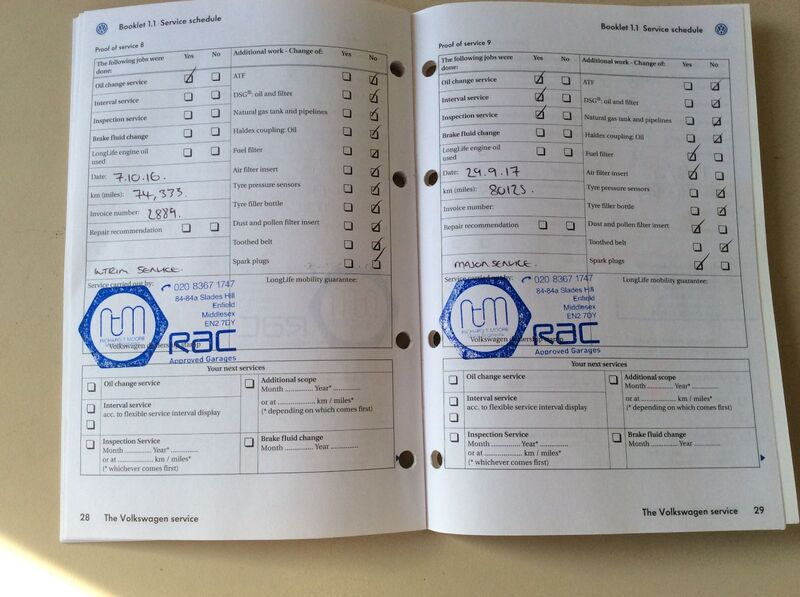 Booklet 1.1 Service schedule
Proof of service 8
The following jobs were done: Yes No
Additional work - Change of: Yes No
Oil change service
Interval service
Inspection service
Brake fluid change
LongLife engine oil used
Date: 7.10.16.
km (miles): 74,335.
Invoice number: 2889.
Repair recommendation
INTRIM SERVICE.
ATF
DSG®: oil and filter
Natural gas tank and pipelines
Haldex coupling: Oil
Fuel filter
Air filter insert
Tyre pressure sensors
Tyre filler bottle
Dust and pollen filter insert
Toothed belt
Spark plugs
Service carried out by:
LongLife mobility guarantee:
020 8367 1747
84-84a Slades Hill
Enfield
Middlesex
EN2 7DY
RICHARD T MOORE
RAC
Approved Garages
Your next services
Oil change service
Interval service
acc. to flexible service interval display
Inspection Service
Month .............. Year*..............
or at .............. km / miles*
(* whichever comes first)
Additional scope
Month .............. Year*..............
or at .............. km / miles*
(* depending on which comes first)
Brake fluid change
Month .............. Year ..............
28 The Volkswagen service
Booklet 1.1 Service schedule
Proof of service 9
The following jobs were done: Yes No
Additional work - Change of: Yes No
Oil change service
Interval service
Inspection service
Brake fluid change
LongLife engine oil used
Date: 29.9.17
km (miles): 80125.
Invoice number:
Repair recommendation
MAJOR SERVICE.
ATF
DSG®: oil and filter
Natural gas tank and pipelines
Haldex coupling: Oil
Fuel filter
Air filter insert
Tyre pressure sensors
Tyre filler bottle
Dust and pollen filter insert
Toothed belt
Spark plugs
Service carried out by:
LongLife mobility guarantee:
020 8367 1747
84-84a Slades Hill
Enfield
Middlesex
EN2 7DY
RICHARD T MOORE
RAC
Approved Garages
Your next services
Oil change service
Interval service
acc. to flexible service interval display
Inspection Service
Month .............. Year*..............
or at .............. km / miles*
(* whichever comes first)
Additional scope
Month .............. Year*..............
or at .............. km / miles*
(* depending on which comes first)
Brake fluid change
Month .............. Year ..............
The Volkswagen service 29